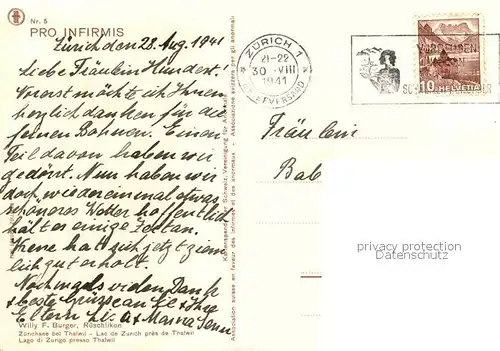 Nr. 5
PRO INFIRMIS
Zürich den 28. Aug. 1941
Liebe Fräulein Hundert.
Vorerst möchte ich Ihnen
herzlich danken für die
feinen Bohnen. Einen
Teil davon haben wir
gedörrt. Nun haben wir
doch wieder einmal etwas
schöneres Wetter hoffentlich
hält es einige Zeit an.
hat sich jetzt ziem
lich gut erholt.
Nochmals vielen Dank
& beste Grüsse an Sie & Ihre
Eltern
Willy F. Burger, Rüschlikon
Zürichsee bei Thalwil - Lac de Zurich près de Thalwil
Lago di Zurigo presso Thalwil
Schweiz. Vereinigung für Anormale
Association suisse en faveur des anormaux - Associazione svizzera per gli anormali
ZÜRICH 1
21-22
30. VIII
1941
BRIEFVERSAND
10 HELVETIA
Fräulein
Bab
privacy protection
Datenschutz